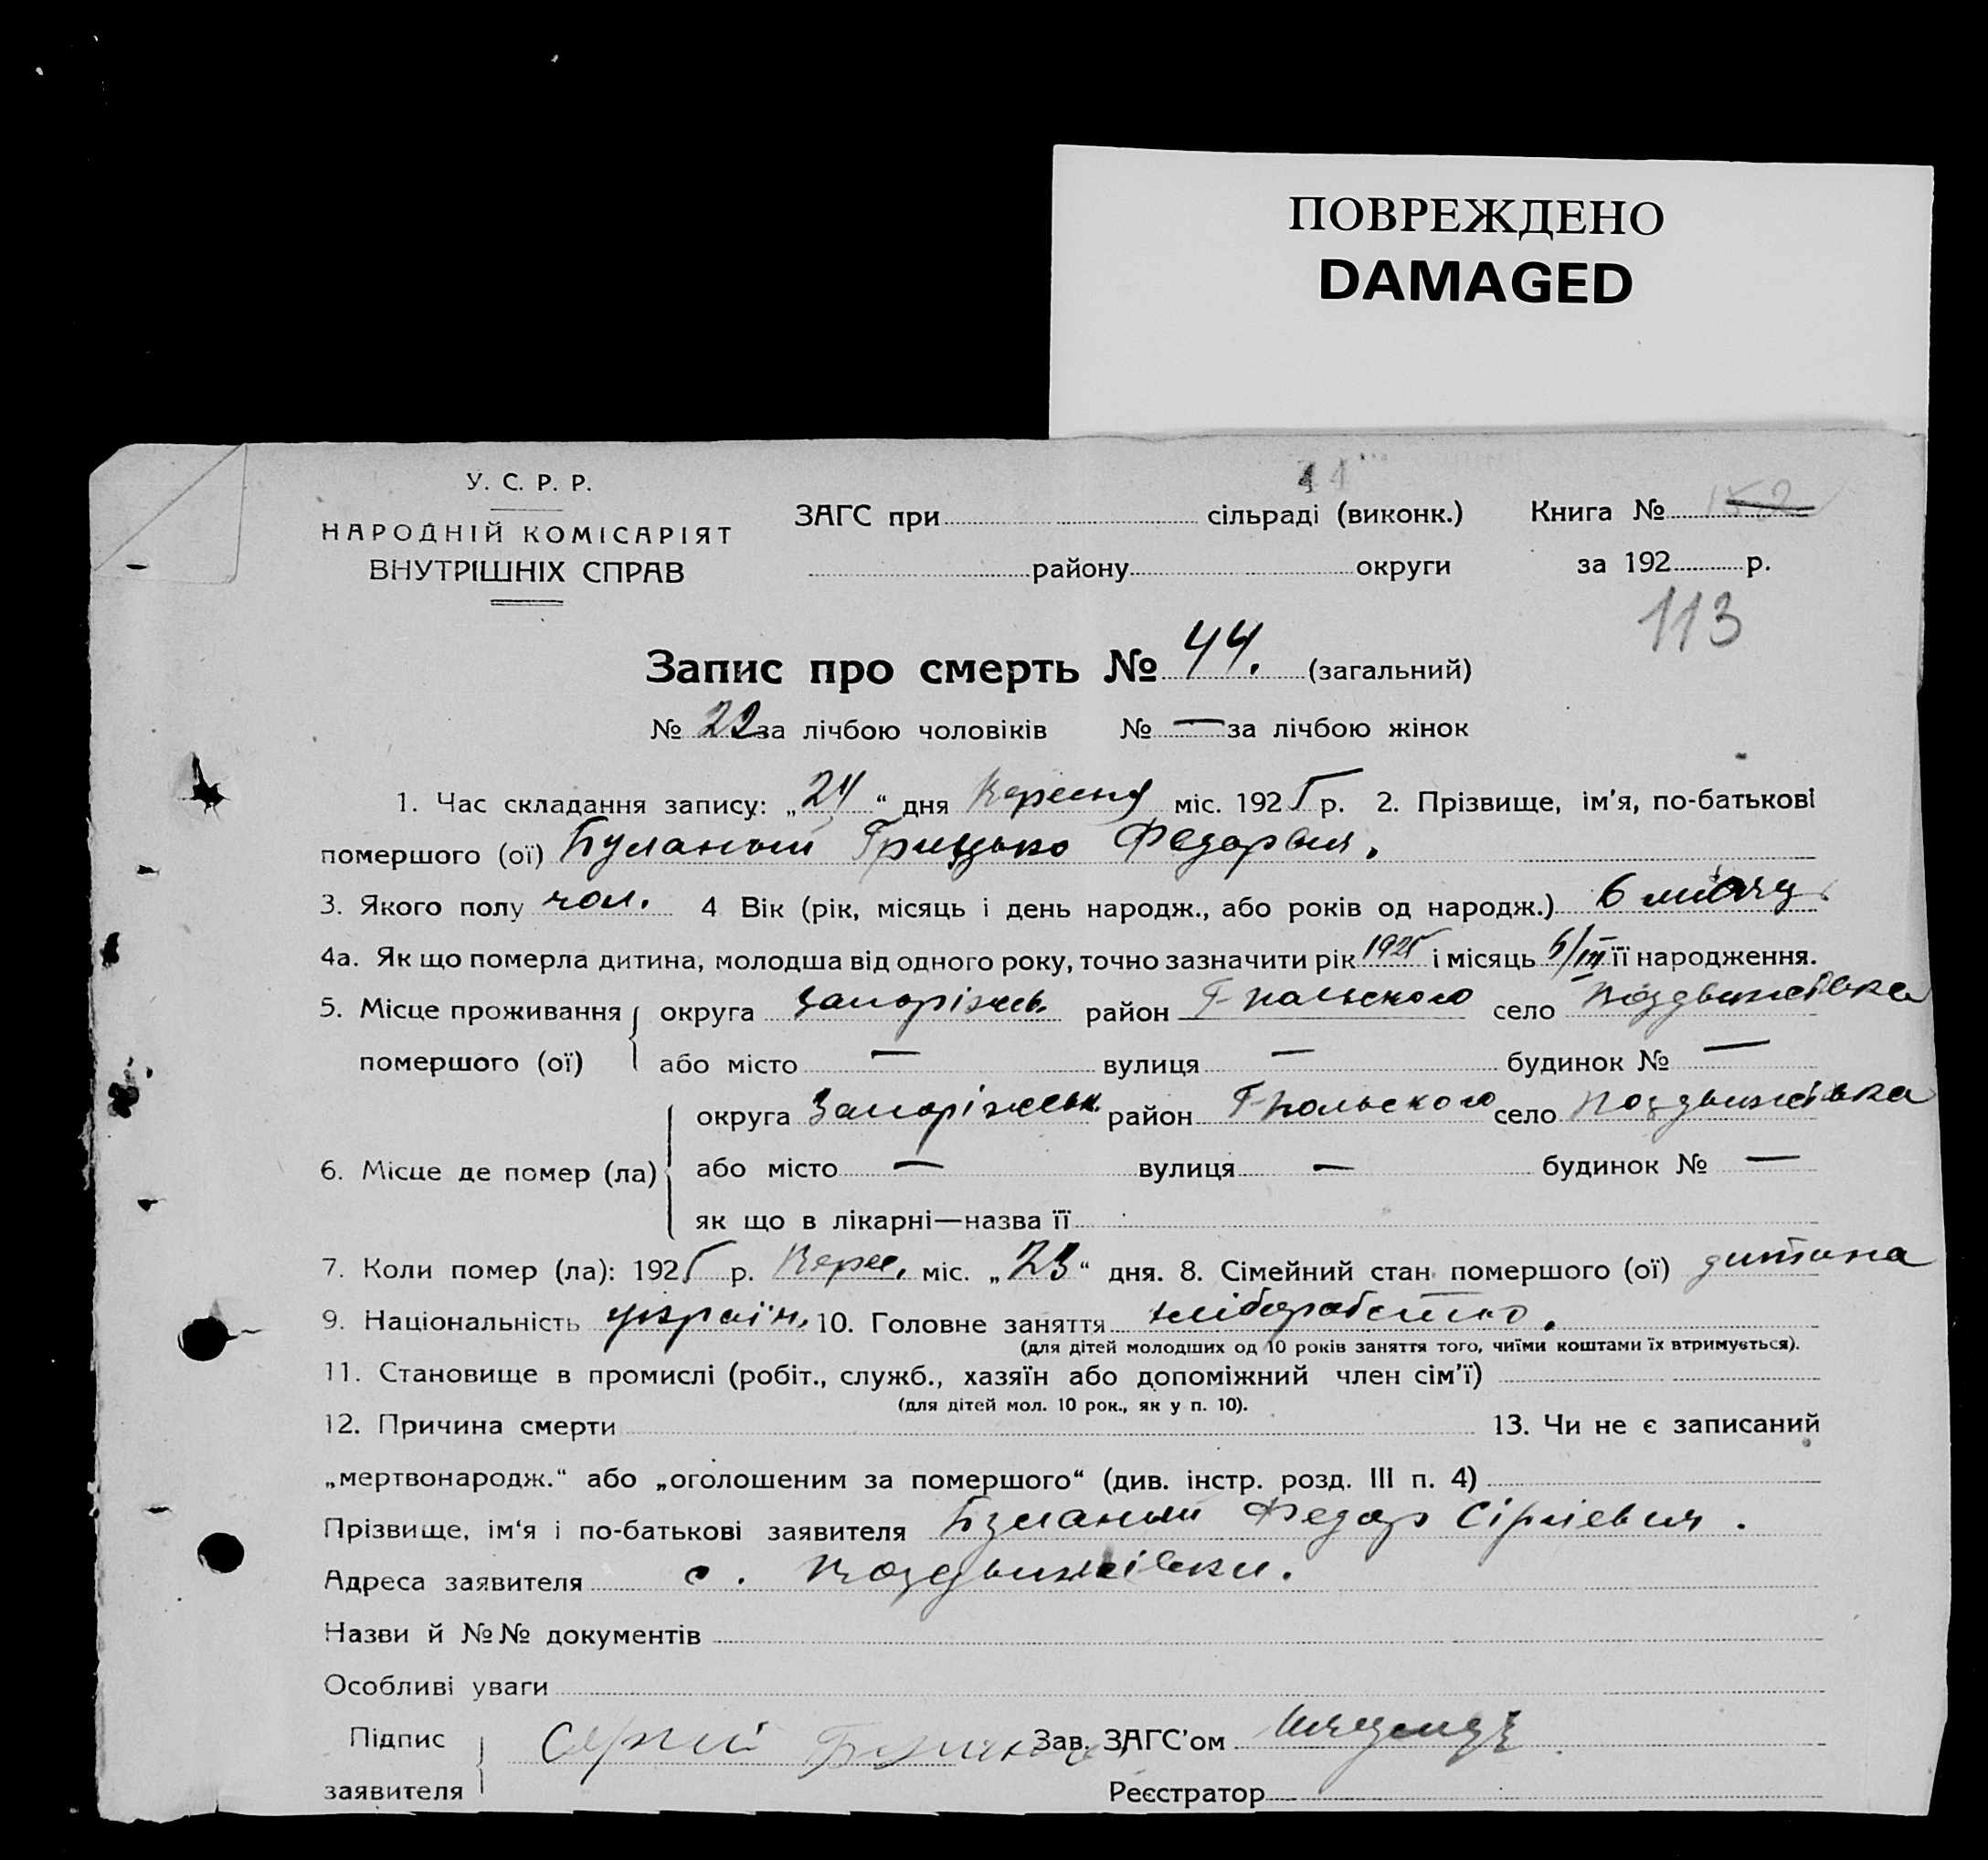 ПОВРЕЖДЕНО
DAMAGED
У. С. Р. Р.
НАРОДНІЙ КОМІСАРІЯТ
ВНУТРІШНІХ СПРАВ
ЗАГС при сільраді (виконк.) Книга №
району округи за 192 р.
113
Запис про смерть № 44. (загальний)
№ 22 за лічбою чоловіків № — за лічбою жінок
1. Час складання запису: „24“ дня Вересня міс. 1925 р. 2. Прізвище, ім'я, по-батькові
помершого (ої) Буланый Грицько Федорвич.
3. Якого полу чол. 4 Вік (рік, місяць і день народж., або років од народж.) 6 місяц
4а. Як що померла дитина, молодша від одного року, точно зазначити рік 1925 і місяць /III її народження.
5. Місце проживання округа Запоріжськ. район Г-Польского село Воздвижівка
помершого (ої) або місто — вулиця — будинок № —
округа Запоріжськ. район Г-Польского село Воздвижівка
6. Місце де помер (ла) або місто — вулиця — будинок № —
як що в лікарні—назва її
7. Коли помер (ла): 1925 р. Верес. міс. „23“ дня. 8. Сімейний стан помершого (ої) дитина
9. Національність україн. 10. Головне заняття хліборобство.
(для дітей молодших од 10 років заняття того, чиїми коштами їх втримується).
11. Становище в промислі (робіт., служб., хазяїн або допоміжний член сім'ї)
(для дітей мол. 10 рок., як у п. 10).
12. Причина смерти 13. Чи не є записаний
„мертвонародж.“ або „оголошеним за помершого“ (див. інстр. розд. III п. 4)
Прізвище, ім'я і по-батькові заявителя Буланый Федор Сіргієвич.
Адреса заявителя с. Воздвижівки.
Назви й №№ документів
Особливі уваги
Підпис Сергій Зав. ЗАГС'ом
заявителя Реєстратор